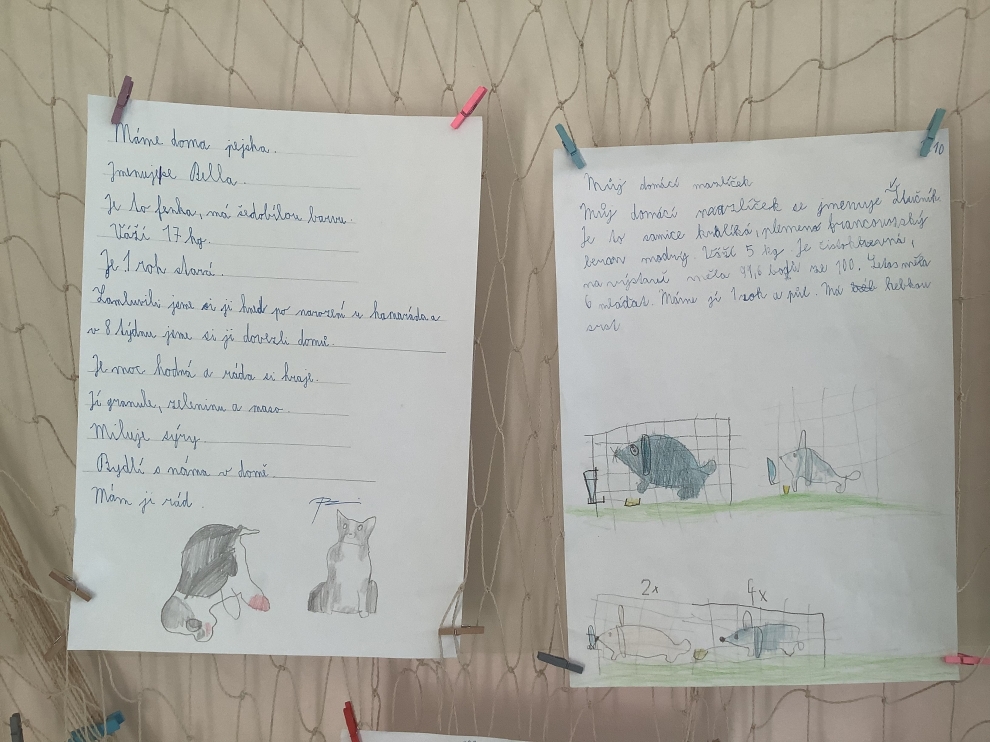 Máme doma pejska.
Jmenuje se Bella.
Je to fenka, má šedobílou barvu.
Váží 17 kg.
Je 1 rok stará.
Zamluvili jsme si ji hned po narození u kamaráda a
v 8 týdnu jsme si ji dovezli domů.
Je moc hodná a ráda si hraje.
Jí granule, zeleninu a maso.
Miluje sýry.
Bydlí s náma v domě.
Mám ji rád.
10
Můj domácí mazlíček
Můj domácí mazlíček se jmenuje Žlučník.
Je to samice králíka, plemeno francouzský
beran modrý. Váží 5 kg. Je čistokrevná,
na výstavě měla 91,6 bodů ze 100. Letos měla
6 mláďat. Máme jí 1 rok a půl. Má hebkou
srst
2x 4x